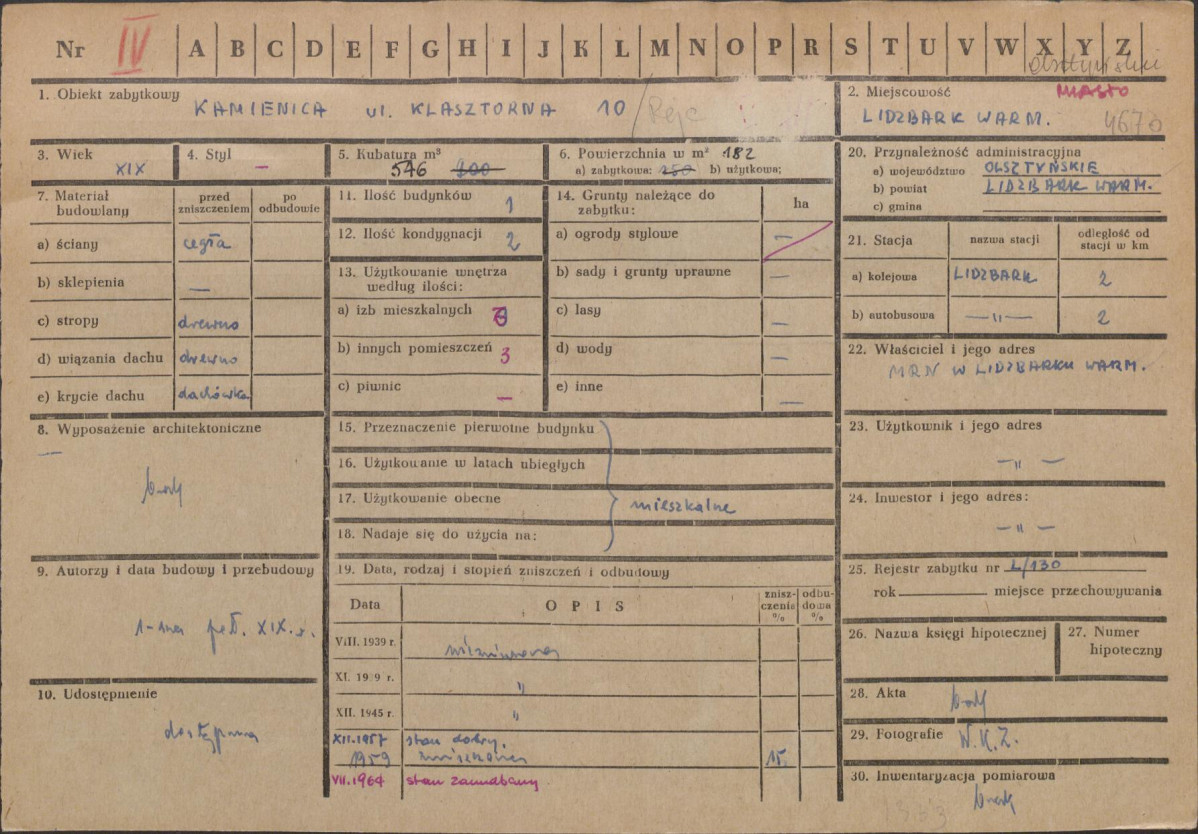 Nr IV A B C D E F G H I J K L M N O P R S T U V W X Y Z
olsztyńskie
1. Obiekt zabytkowy
KAMIENICA ul. KLASZTORNA 10 / Rejc
2. Miejscowość MIASTO
LIDZBARK WARM. 4670
3. Wiek
XIX
4. Styl
—
5. Kubatura m³
546 800
6. Powierzchnia w m² 182
a) zabytkowa: 250 b) użytkowa;
7. Materiał budowlany
przed zniszczeniem
po odbudowie
a) ściany cegła
b) sklepienia —
c) stropy drewno
d) wiązania dachu drewno
e) krycie dachu dachówka
8. Wyposażenie architektoniczne
—
brak
9. Autorzy i data budowy i przebudowy
1-sza poł. XIX w.
10. Udostępnienie
dostępna
11. Ilość budynków 1
12. Ilość kondygnacji 2
13. Użytkowanie wnętrza
według ilości:
a) izb mieszkalnych
b) innych pomieszczeń 3
c) piwnic —
14. Grunty należące do
zabytku:
ha
a) ogrody stylowe —
b) sady i grunty uprawne —
c) lasy —
d) wody —
e) inne —
15. Przeznaczenie pierwotne budynku
16. Użytkowanie w latach ubiegłych
17. Użytkowanie obecne
mieszkalne
18. Nadaje się do użycia na:
19. Data, rodzaj i stopień zniszczeń i odbudowy
Data
OPIS
znisz-
czenia
%
odbu-
dowa
%
VIII. 1939 r. niezniszczona
XI. 1939 r. "
XII. 1945 r. "
XII.1957 stan dobry.
1959 zniszczenia 15
VII.1964 stan zaniedbany
20. Przynależność administracyjna
a) województwo OLSZTYŃSKIE
b) powiat LIDZBARK WARM.
c) gmina
21. Stacja
nazwa stacji
odległość od
stacji w km
a) kolejowa LIDZBARK 2
b) autobusowa —"— 2
22. Właściciel i jego adres
MRN W LIDZBARKU WARM.
23. Użytkownik i jego adres
—"—
24. Inwestor i jego adres:
—"—
25. Rejestr zabytku nr L/130
rok miejsce przechowywania
26. Nazwa księgi hipotecznej
27. Numer
hipoteczny
28. Akta brak
29. Fotografie W.K.Z.
30. Inwentaryzacja pomiarowa
brak